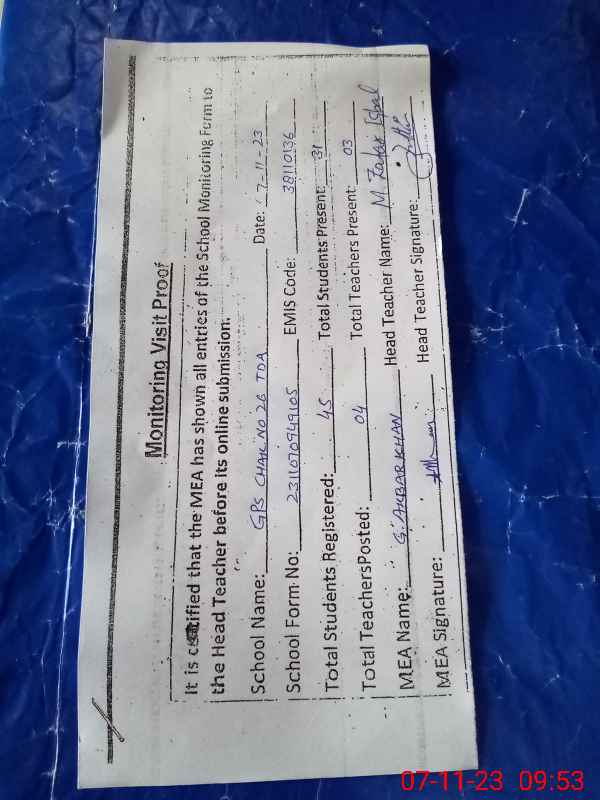 Monitoring Visit Proof
It is certified that the MEA has shown all entries of the School Monitoring Form to
the Head Teacher before its online submission.
School Name: GPS CHAK NO 26 TDA Date: 7-11-23
School Form No: 2311070949105 EMIS Code: 38110136
Total Students Registered: 45 Total Students Present: 31
Total TeachersPosted: 04 Total Teachers Present: 03
MEA Name: G. AKBAR KHAN Head Teacher Name: M. Zafar Iqbal
MEA Signature: Head Teacher Signature:
07-11-23 09:53